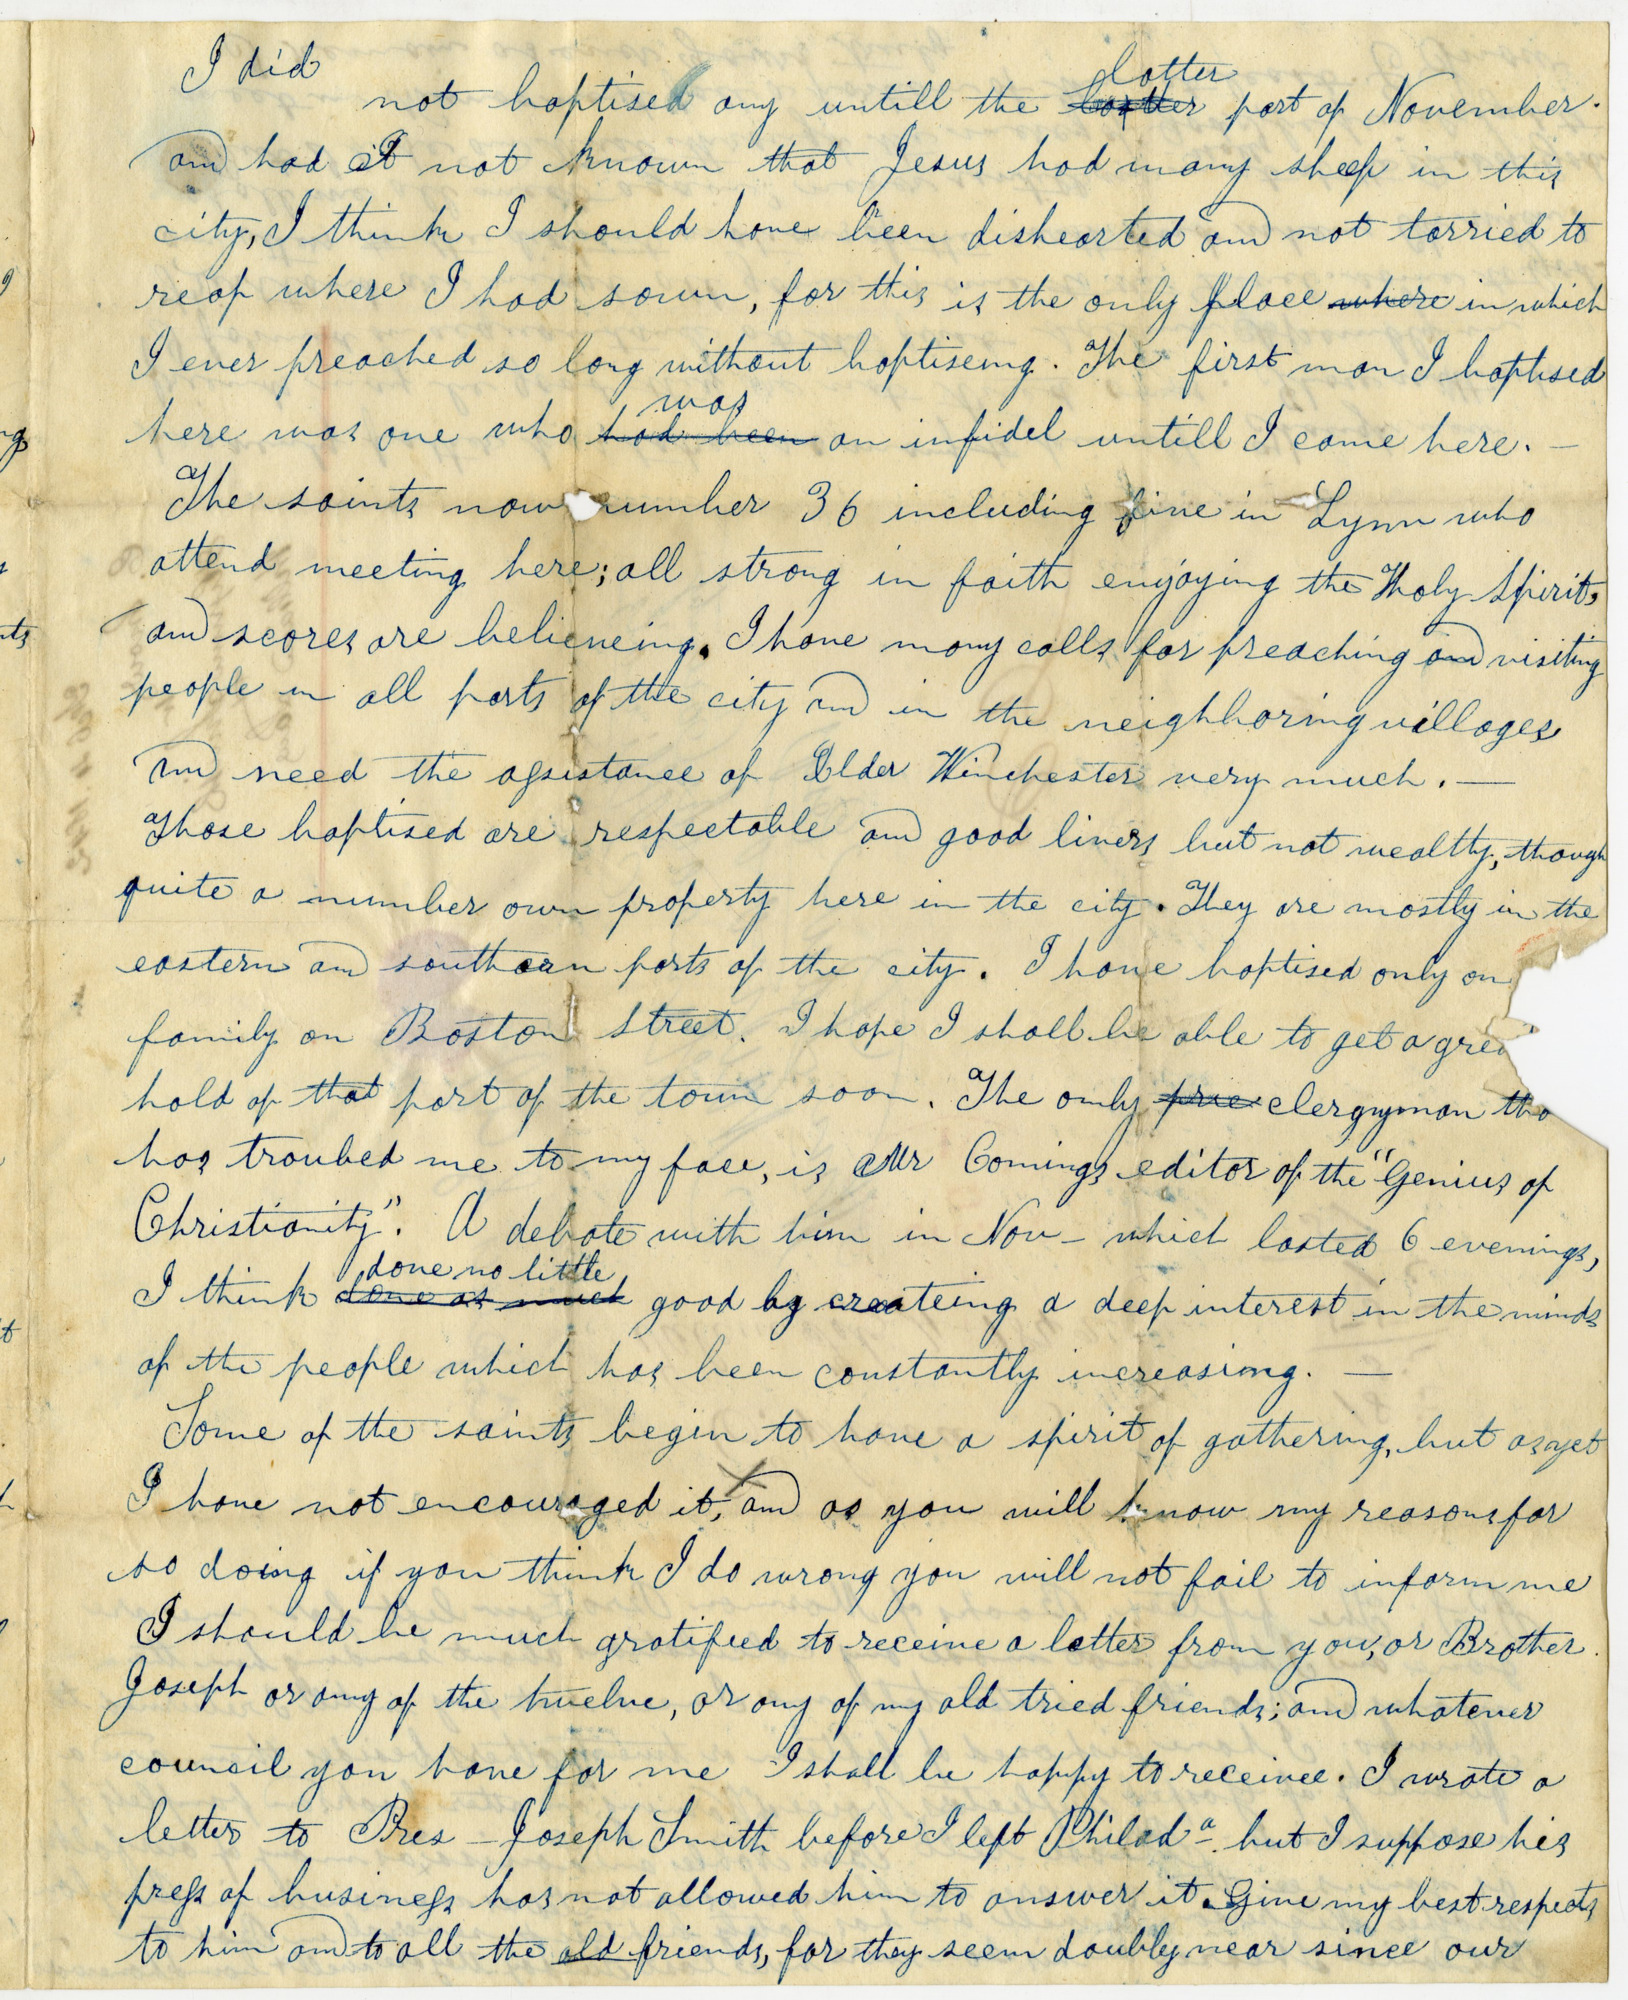 I did
not baptised any untill the latter latter part of November.
and had I not known that Jesus had many sheep in this
city, I think I should have been dishearted and not tarried to
reap where I had sown, for this is the only place where in which
I ever preached so long without baptiseing. The first man I baptised
was
here was one who had been an infidel untill I came here. —
The saints now number 36 including five in Lynn who
attend meeting here; all strong in faith enjoying the Holy Spirit,
and scores are believeing. I have many calls for preaching and visiting
people in all parts of the city and in the neighboring villages
and need the assistance of Elder Winchester very much. —
Those baptised are respectable and good livers but not wealthy, though
quite a number own property here in the city. They are mostly in the
eastern and southern parts of the city. I have baptised only on
family on Boston Street. I hope I shall be able to get a grea
hold of that part of the town soon. The only prie clergyman tha
has troubed me to my face, is Mr Comings editor of the "Genius of
Christianity". A debate with him in Nov — which lasted 6 evenings,
done no little
I think done as much good by createing a deep interest in the minds
of the people which has been constantly increasing. —
Some of the saints begin to have a spirit of gathering, but as yet
I have not encouraged it, and as you will know my reasons for
so doing if you think I do wrong you will not fail to inform me
I should be much gratified to receive a letter from you, or Brother
Joseph or any of the twelve, or any of my old tried friends; and whatever
council you have for me I shall be happy to receivee. I wrote a
letter to Pres — Joseph Smith before I left Philada but I suppose his
press of business has not allowed him to answer it. Give my best respects
to him and to all the old friends, for they seem doubly near since our